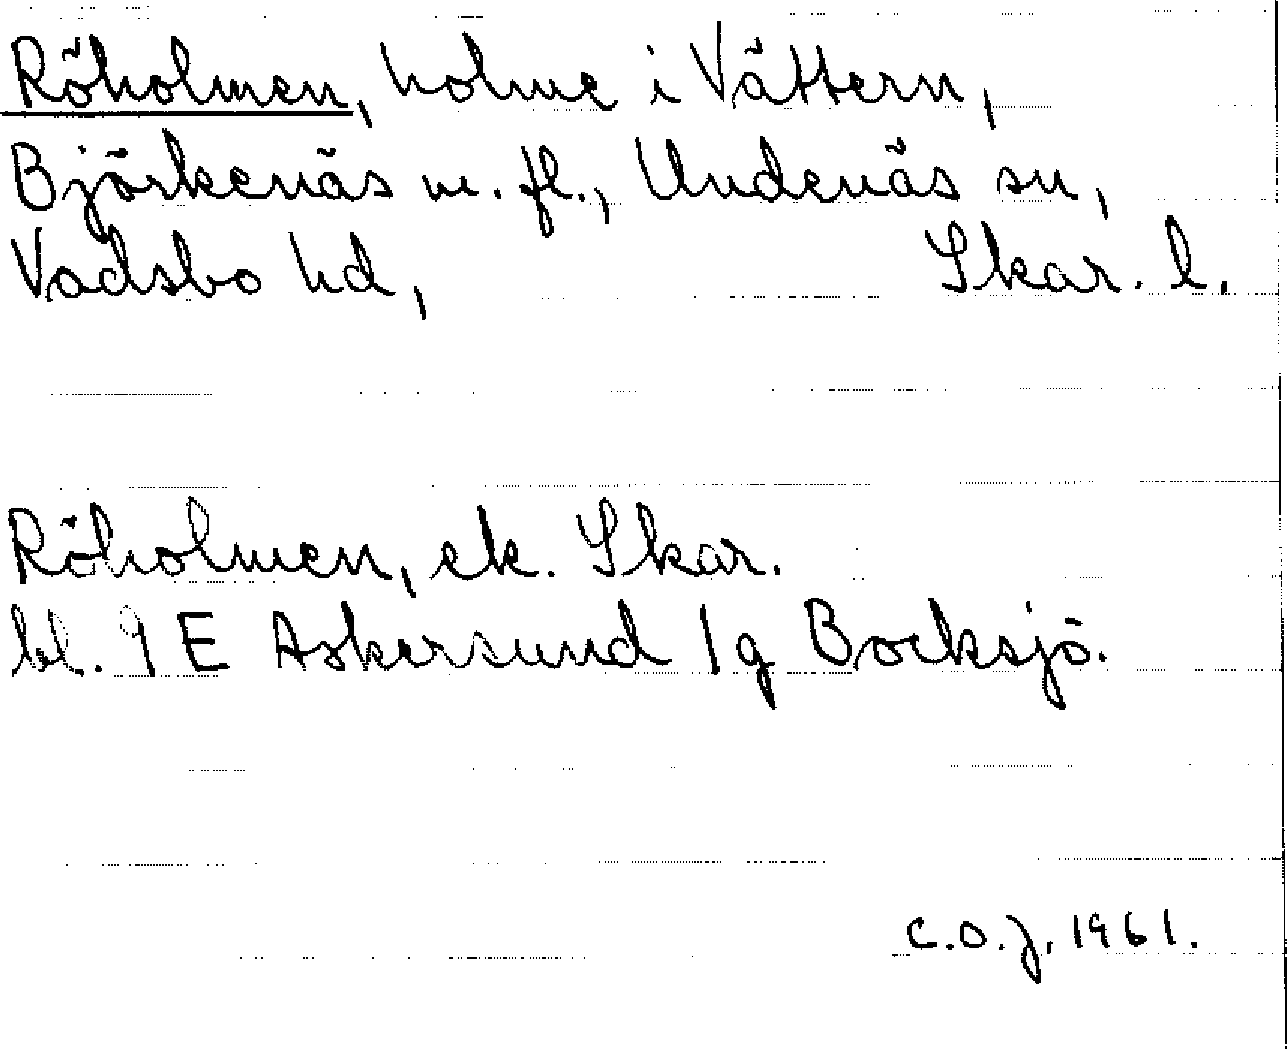 Röholmen, holme i Vättern,
Björkenäs m. fl., Undenäs sn,
Vadsbo hd, Skar. l.
Röholmen, ek. Skar.
bl. 9 E Askersund 1 g Bocksjö.
C.O.J. 1961.